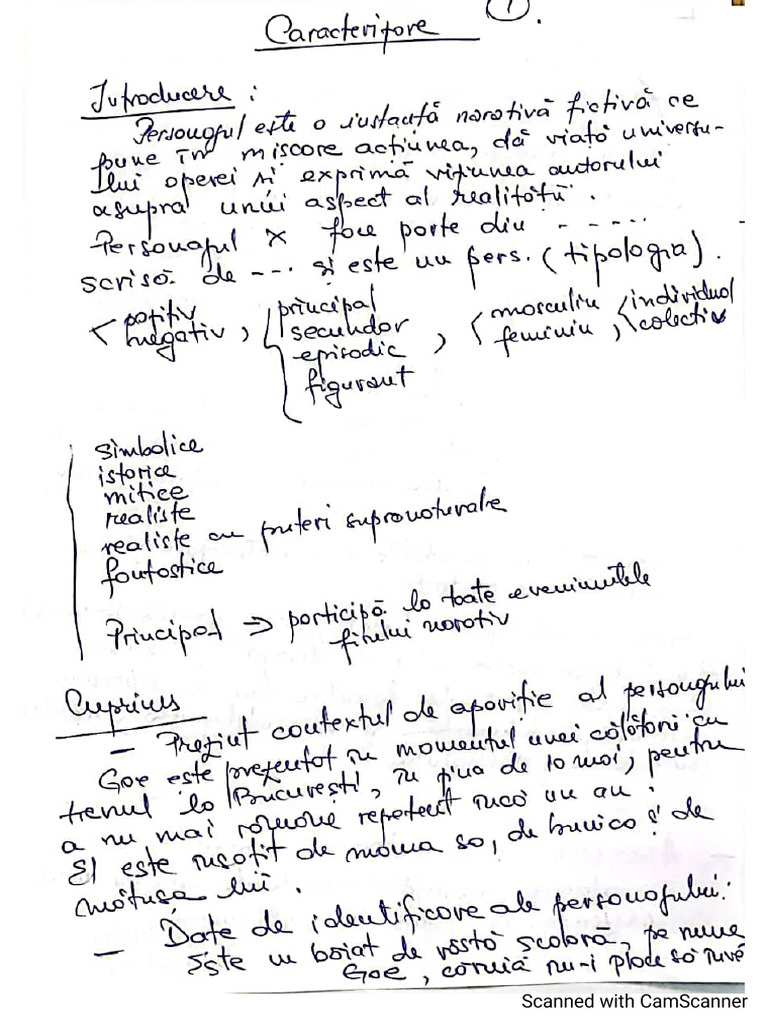 Caracterizare 1.
Introducere :
Personajul este o instanță narativă fictivă ce
pune în mișcare acțiunea, dă viață universu-
lui operei și exprimă viziunea autorului
asupra unui aspect al realității.
Personajul X face parte din -----
scrisă de --- și este un pers. (tipologia).
< pozitiv
negativ, { principal
secundar
episodic
figurant , < masculin
feminin , < individual
colectiv
simbolice
istorice
mitice
realiste
realiste cu puteri supranaturale
fantastice
Principal => participă la toate evenimentele
firului narativ
Cuprins
- Prezint contextul de apariție al personajului
Goe este prezentat în momentul unei călătorii cu
trenul la București, în ziua de 10 mai, pentru
a nu mai rămâne repetent încă un an.
El este însoțit de mama sa, de bunica și de
mătușa lui.
- Date de identificare ale personajului:
Este un băiat de vârstă școlară, pe nume
Goe, căruia nu-i place să înve
Scanned with CamScanner